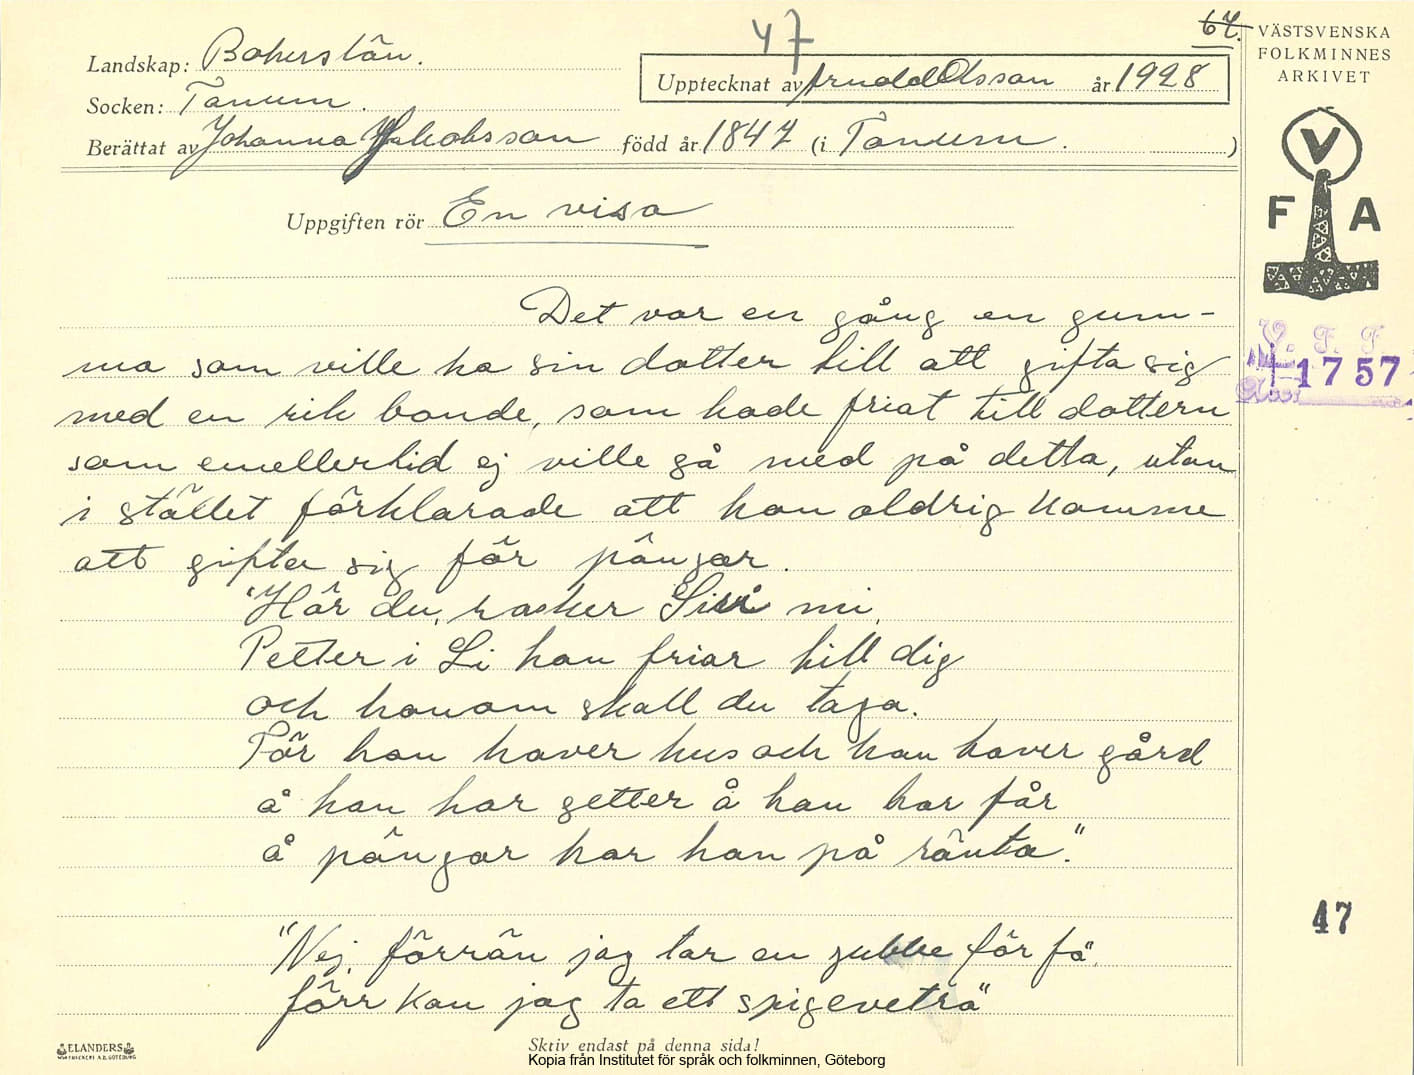 47
67.
VÄSTSVENSKA
FOLKMINNES
ARKIVET
Landskap: Bohuslän.
Upptecknat av Arnold Olsson år 1928
Socken: Tanum.
Berättat av Johanna Jakobsson född år 1847 (i Tanum. )
V
F A
Uppgiften rör En visa
V. F. F.
1757
Det var en gång en gum-
ma som ville ha sin dotter till att gifta sig
med en rik bonde, som hade friat till dottern
som emellertid ej ville gå med på detta, utan
i stället förklarade att hon aldrig komme
att gifta sig för pängar.
"Hör du, rasker Siri mi,
Petter i Li han friar till dig
och honom skall du taga.
För han haver hus och han haver gård
å han har getter å han har får
å pängar har han på ränta."
"Nej, förrän jag tar en gubbe för fä
förr kan jag ta ett spigeveträ"
47
ELANDERS
Skriv endast på denna sida!
Kopia från Institutet för språk och folkminnen, Göteborg